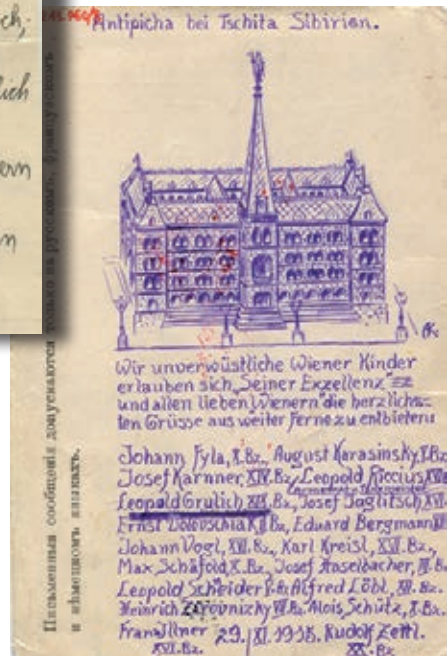 ch,
lich
ern
n
Antipicha bei Tschita Sibirien.
Письменныя сообщенія допускаются только на русскомъ, французскомъ
и нѣмецкомъ языкахъ.
Wir unverwüstliche Wiener Kinder
erlauben sich „Seiner Exzellenz"
und allen lieben „Wienern" die herzlichs=
ten Grüsse aus weiter Ferne zu entbieten:
Johann Fyla, X.Bz., August Karasinsky X.Bz
Josef Karnner XIV.Bz., Leopold Riccius
Leopold Grulich XIX.Bz., Josef Jaglitsch
Ernst Eduard Bergmann
Johann Vogl, XVI.Bz., Karl Kreisl, XXI.Bz.,
Max Schäfold, X.Bz., Josef Haselbacher,
Leopold Schneider Alfred Löbl,
Heinrich Alois Schütz, X.Bz.
Franz Illner 29. XI. 1915. Rudolf Zettl.
XVI.Bz. XX.Bz